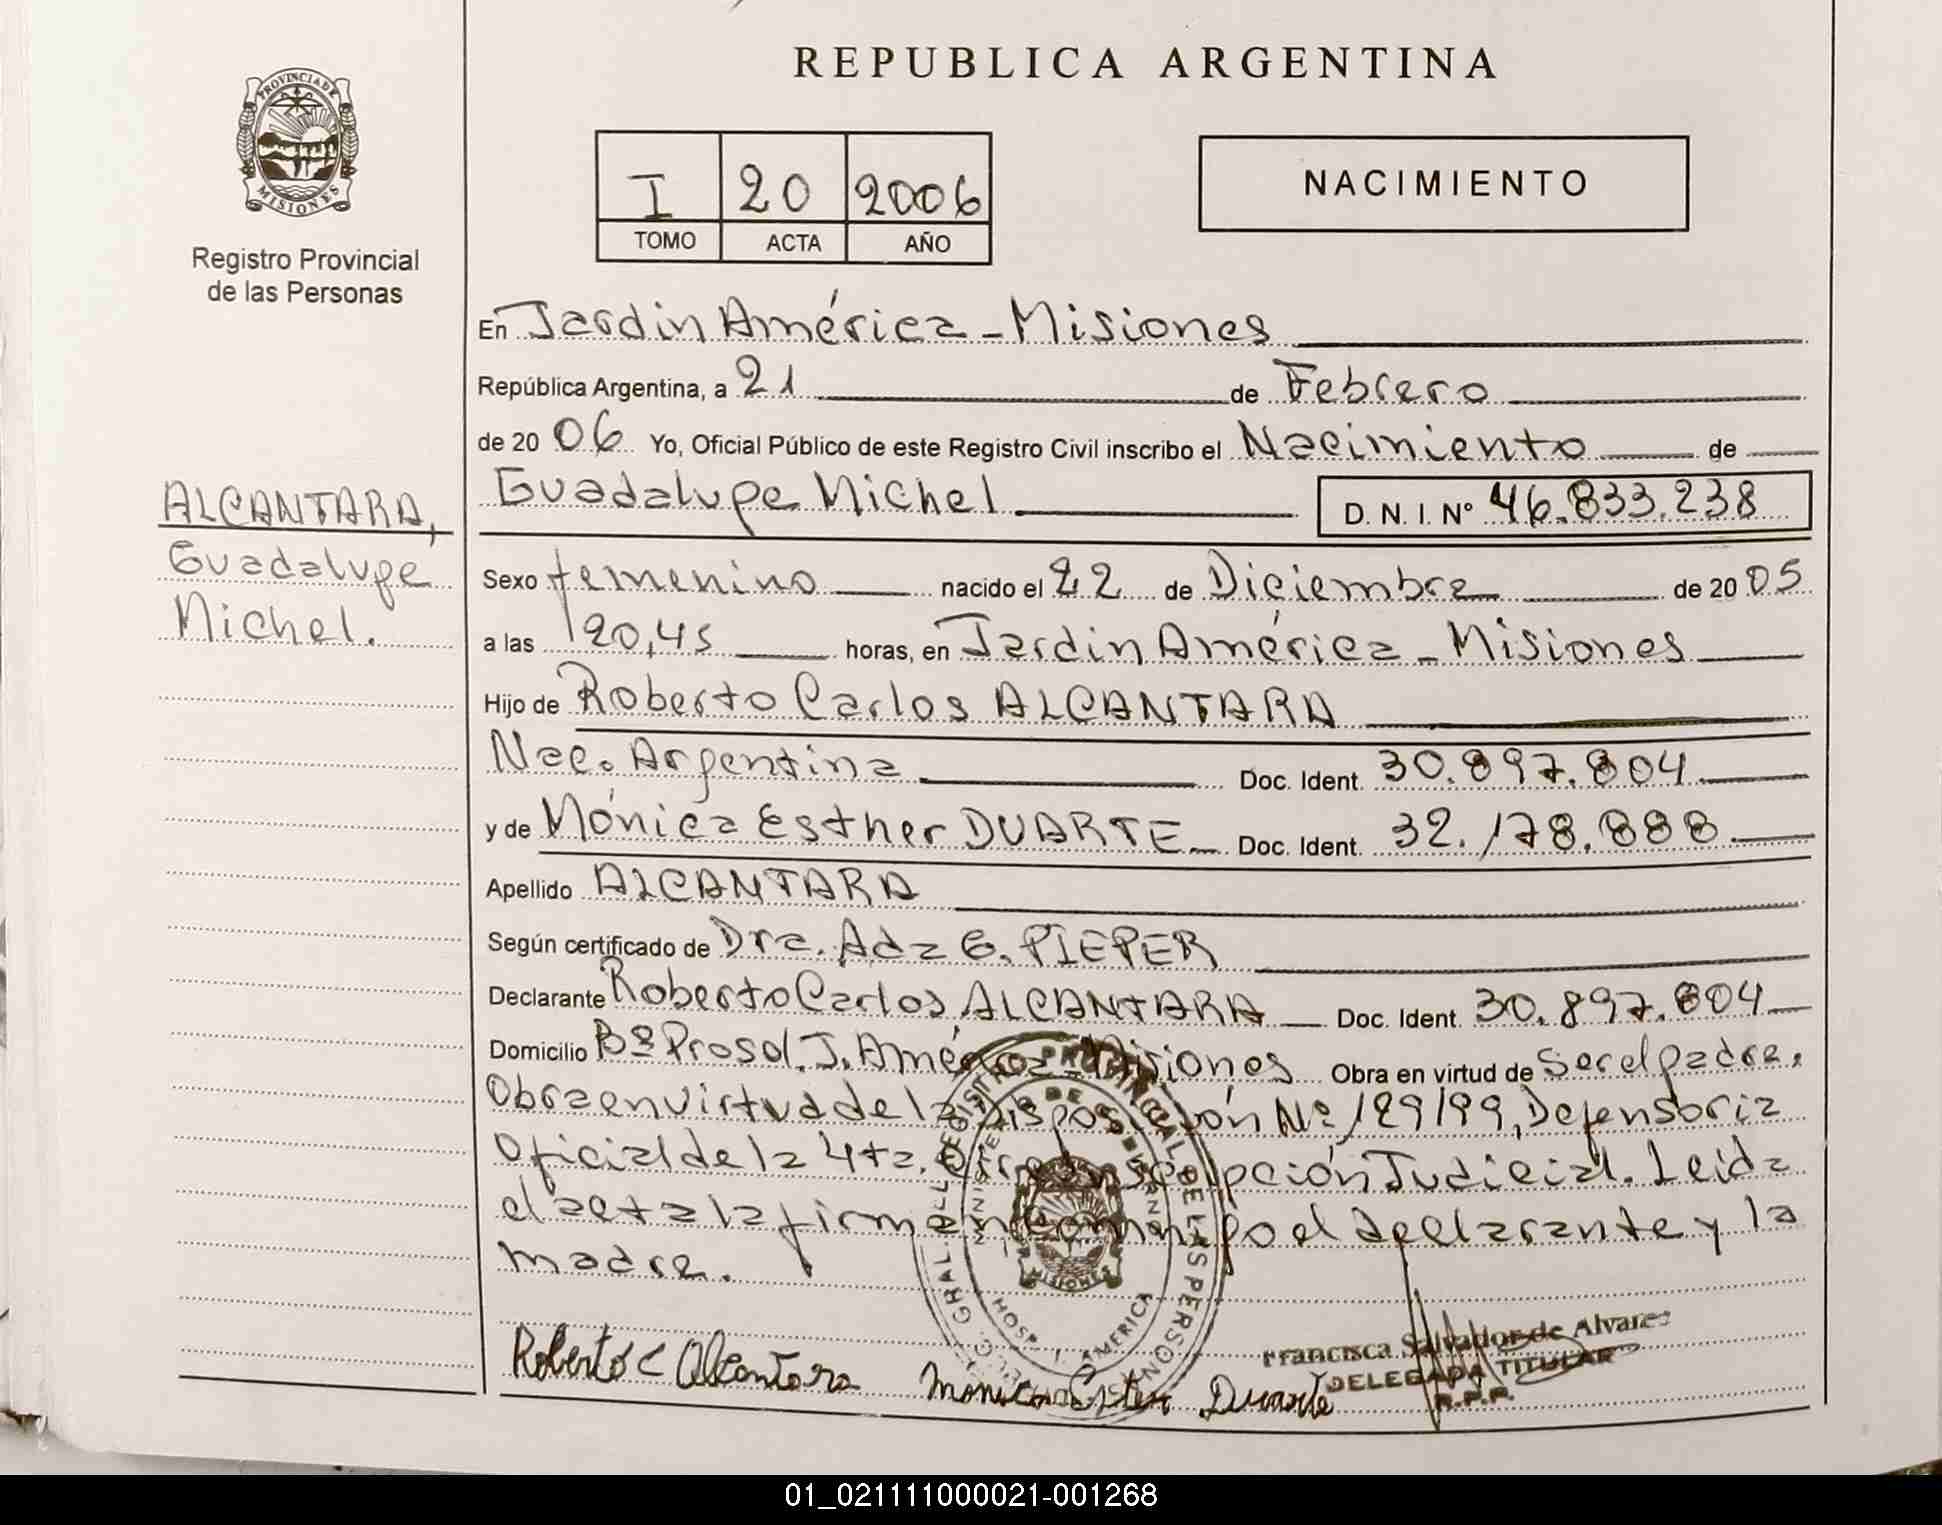 REPUBLICA ARGENTINA
PROVINCIA DE
MISIONES
Registro Provincial
de las Personas
I 20 2006
TOMO ACTA AÑO
NACIMIENTO
En Jardin América - Misiones
República Argentina, a 21 de Febrero
de 20 06 Yo, Oficial Público de este Registro Civil inscribo el Nacimiento de
Guadalupe Michel D. N. I. Nº 46.833.238
ALCANTARA,
Guadalupe
Michel.
Sexo femenino nacido el 22 de Diciembre de 20 05
a las 20,45 horas, en Jardin América - Misiones
Hijo de Roberto Carlos ALCANTARA
Nac. Argentina Doc. Ident. 30.897.804
y de Mónica Esther DUARTE Doc. Ident. 32.178.888
Apellido ALCANTARA
Según certificado de Dra. Ada G. PIEPER
Declarante Roberto Carlos ALCANTARA Doc. Ident. 30.897.804
Domicilio Bº Prosol. J. América - Misiones Obra en virtud de Ser el padre.
Obra en virtud de la Disposición Nº 129/99, Defensoria
Oficial de la 4ta. Circunscripción Judicial. Leida
el acta la firman conmigo el declarante y la
madre.
REGISTRO PROVINCIAL DE LAS PERSONAS
MISIONES
HOSP. J. AMERICA
Francisca Salvador de Alvarez
DELEGADA TITULAR
R.P.P.
Roberto C Alcantara Monica Ester Duarte
01_021111000021-001268